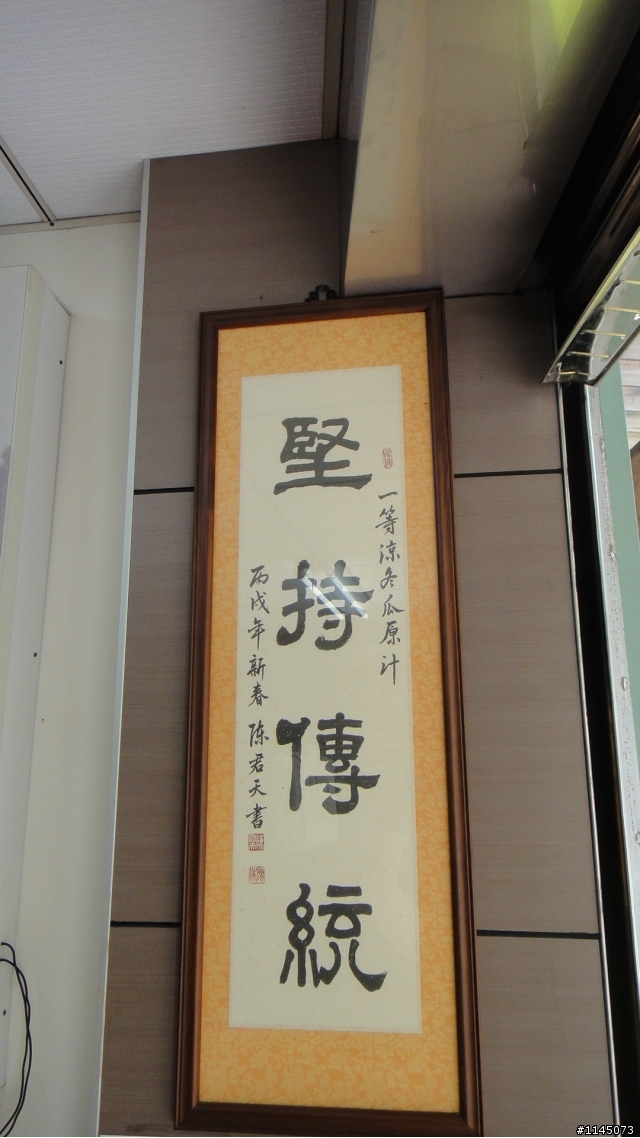 一等涼冬瓜原汁
堅持傳統
丙戌年新春 陳君天書
#1145073